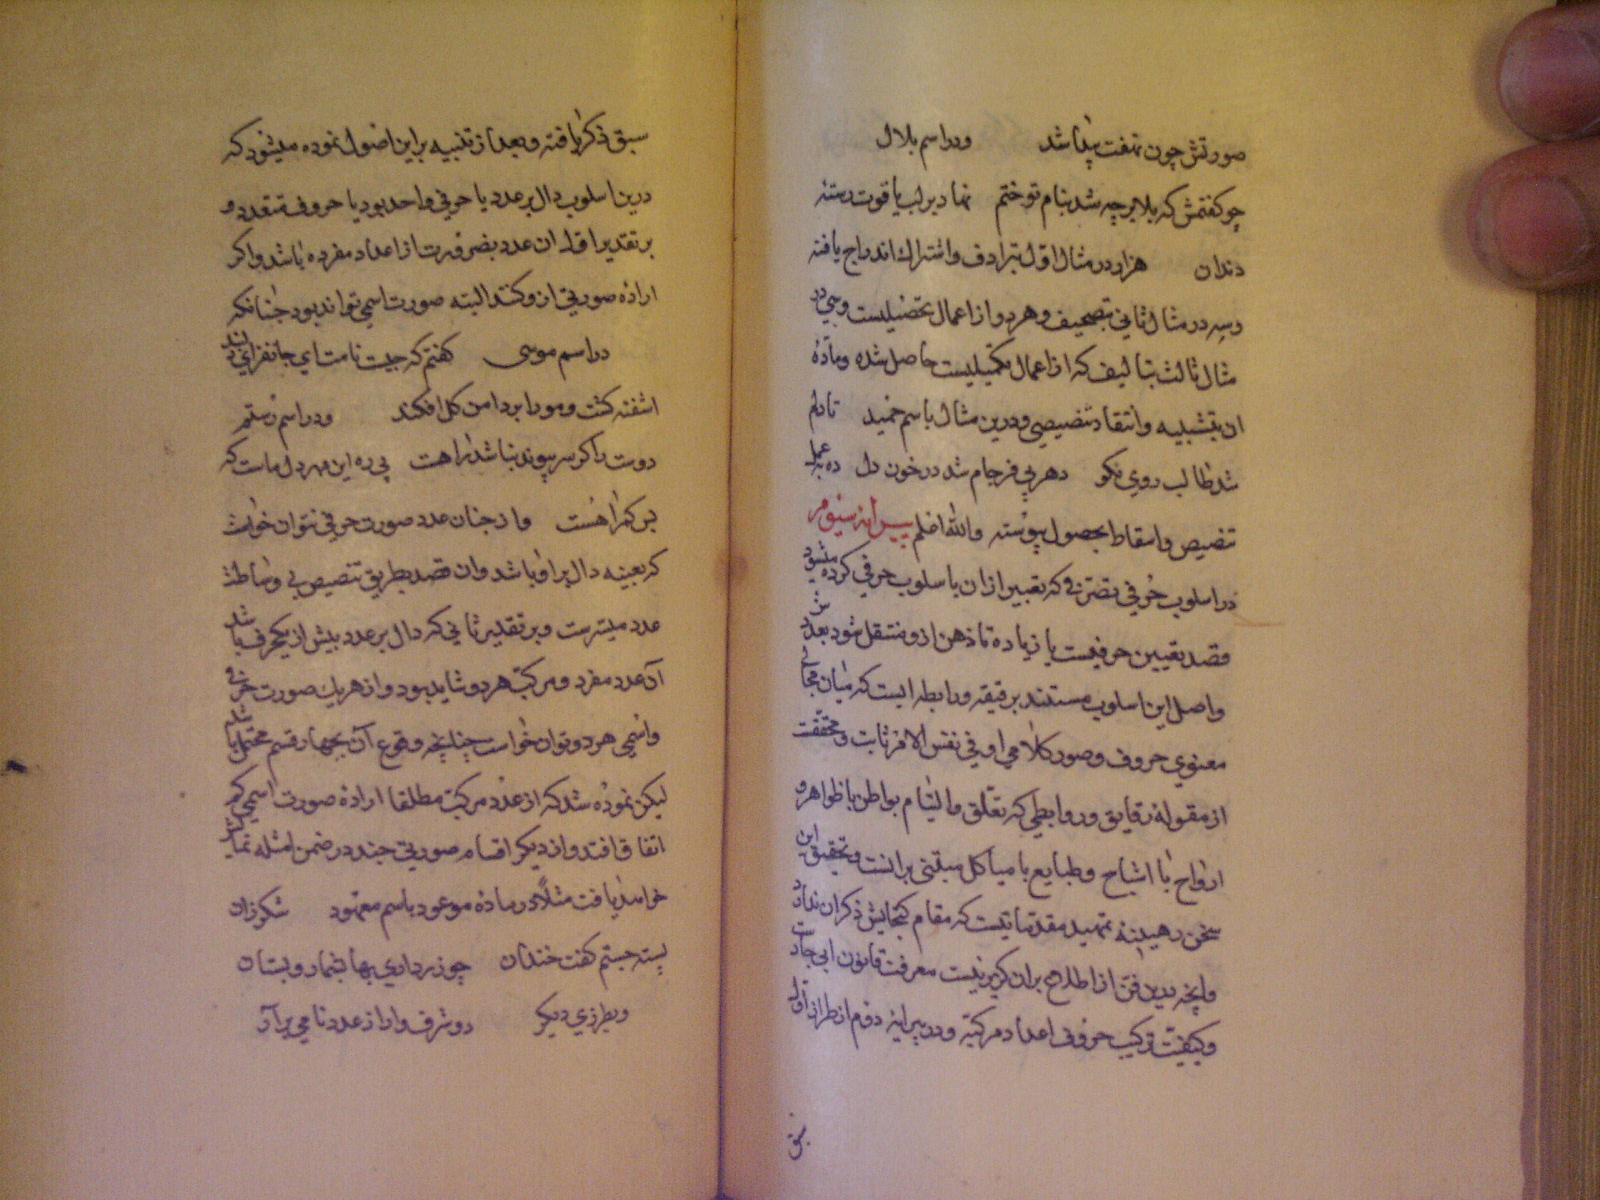 صورتش چون نهفت پیدا شد ودر اسم بلال
چو کفتمش که بلا بر چه شد بنام تو ختم نهاد بر لب یاقوت رسته
دندان هزار در مثال اول بترادف واشتراك اندراج یافته
وسه در مثال ثانی بتصحیف وهر دو از اعمال تحصیلیست وسی در
مثال ثالث بتالیف که از اعمال تکمیلیست حاصل شده ومادهٔ
ان بتشبیه وانتقاد تنصیصی ودرین مثال باسم حمید تا دلم
شد طالب روی نکو دهر بی فرجام شد در خون دل ده بعمل
تنصیص واسقاط بحصول پیوسته والله اعلم پیرایه سیوم
در اسلوب حرفی که تعبیر ازان باسلوب حرفی کرده میشود
قصد تعیین حرفیست یا زیاده تا ذهن ازو منتقل شود بعددش
واصل این اسلوب مستند بر دقیقه ورابطه ایست که میان مجالی
معنوی حروف وصور کلامی او فی نفس الامر ثابت ومحققت
از مقوله رقایق وروابطی که تعلق والتیام بواطن با ظواهر و
ارواح با اشباح وطبایع با هیاکل مبتنی برانست وتحقیق این
سخن رهینهٔ تمهید مقدماتیست که مقام کنجایش ذکر ان ندارد
وانچه درین فن از اطلاع بران کریز نیست معرفت قانون ابی جادست
وکیفیت ترکیب حروف اعداد مرکبه ودر پیرایه دوم از طراز اول
سبق
سبق ذکر یافته وبعد از تنبیه بر این اصول نموده میشود که
درین اسلوب دال بر عدد یا حرفی واحد بود یا حروف متعدد و
بر تقدیر اول ان عدد بضرورت از اعداد مفرده باشد واکر
ارادهٔ صورتی ازو کنند البته صورت اسمی تواند بود چنانکه
در اسم موسی کفتم که چیست نامت ای جانفزای دلبند
اشفته کشت ومو را بر دامن کل افکند ودر اسم رستم
دوست را کر سر پیوند نباشد راهت پی ره این مهر دل ماست که
بر کمراهست واز چنان عدد صورت حرفی نتوان خواست
که بعینه دال بر او باشد وان قصد بطریق تنصیص بی وساطت
عدد میسرست وبر تقدیر ثانی که دال بر عدد بیش از یکحرف باشد
آن عدد مفرد ومرکب هر دو شاید بود واز هر یك صورت حرفی
واسمی هر دو توان خواست چنانچه وقوع آن بچهار قسم محتمل باشد
لیکن نموده شد که از عدد مرکب مطلقا ارادهٔ صورت اسمی کم
اتفاق افتد واز دیکر اقسام صورتی چند در ضمن امثله نمایش
خواهد یافت مثلا در مادهٔ موعود باسم محمود شکر زان
پسته جستم کفت خندان چو زر داری بها بشمار وبستان
وبطرزی دیکر دو شرف وار از عدد نامی برآر